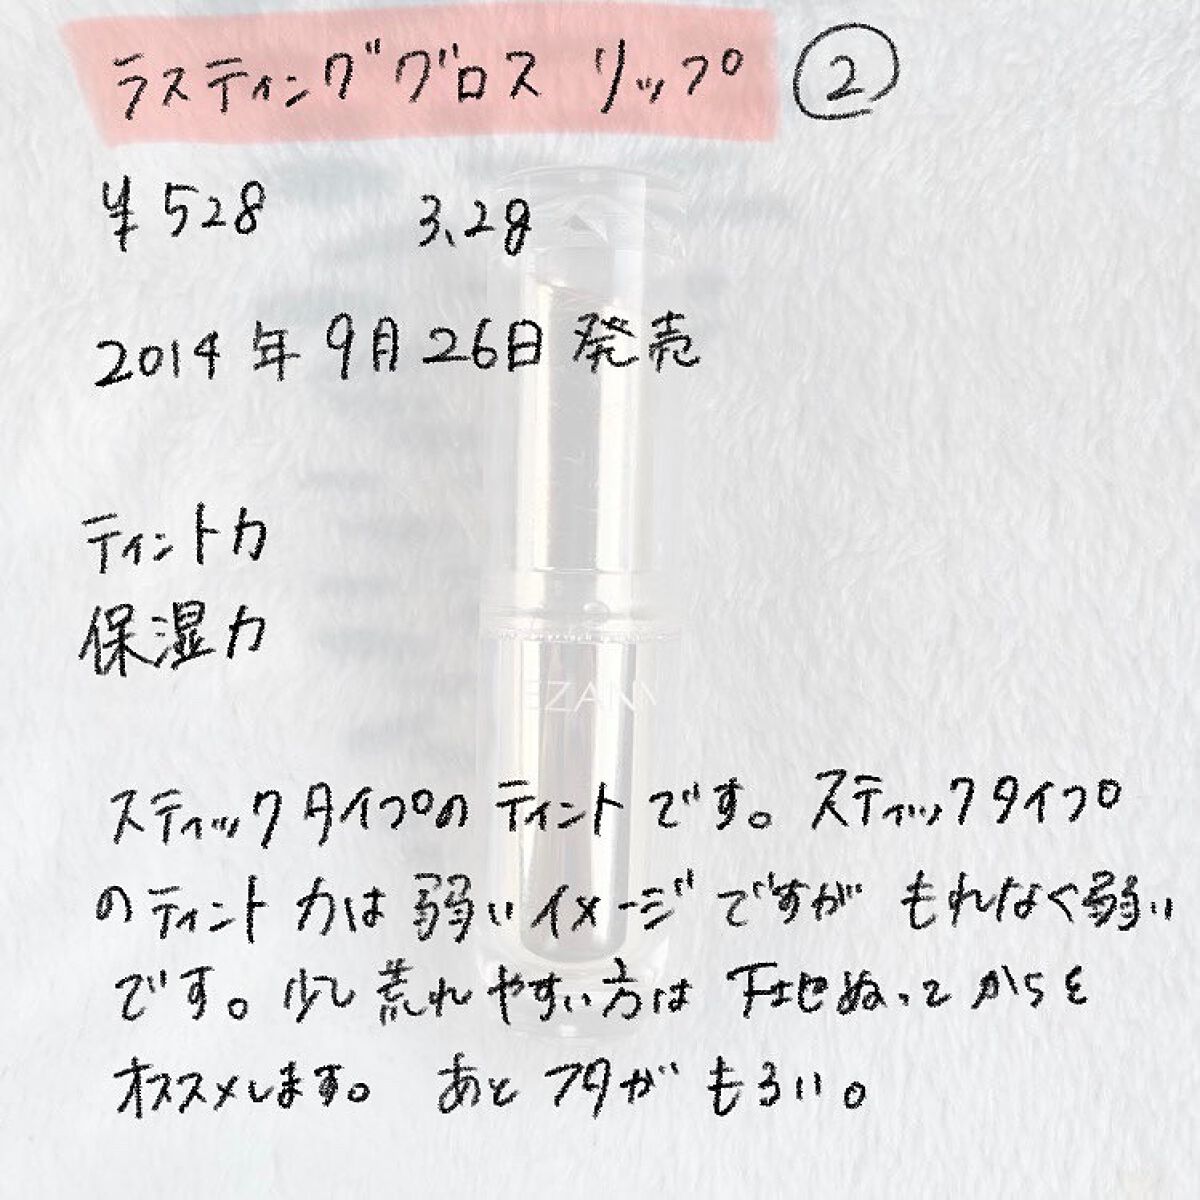 ラスティンググロス リップ ②
¥528 3.2g
2014年9月26日発売
ティント力
保湿力
EZAN
スティックタイプのティントです。スティックタイプ
のティント力は弱いイメージですが もれなく弱い
です。少し荒れやすい方は 下地ぬってからを
オススメします。 あと フタが もろい。